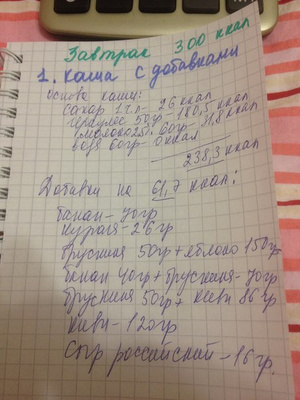 Завтрак 300 ккал
1. каша с добавками
основа каши:
сахар 1ч.л - 26 ккал
геркулес 50гр - 180,5 ккал
молоко 2,5% 60гр - 31,8 ккал
вода 60гр - 0 ккал
238,3 ккал
Добавки на 61,7 ккал:
банан - 70гр
курага - 26гр
брусника 50гр + яблоко 150гр
банан 40гр + брусника - 70гр
брусника 50гр + киви 86гр
киви - 120гр
сыр российский - 16гр.